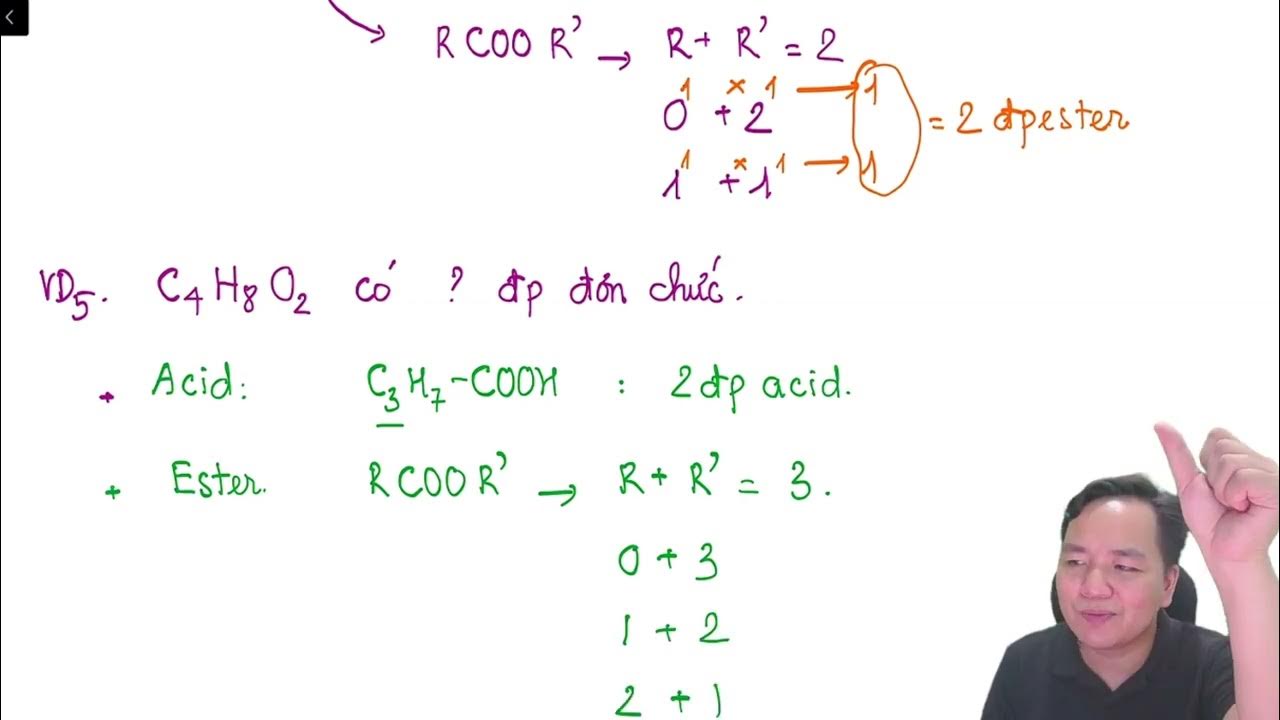 R COO R' → R + R' = 2
1 × 1 → 1
0 + 2
= 2 đp ester
1 × 1 → 1
1 + 1
VD5. C4H8O2 có ? đp đơn chức.
+ Acid: C3H7-COOH : 2 đp acid.
+ Ester. R COO R' → R + R' = 3.
0 + 3
1 + 2
2 + 1